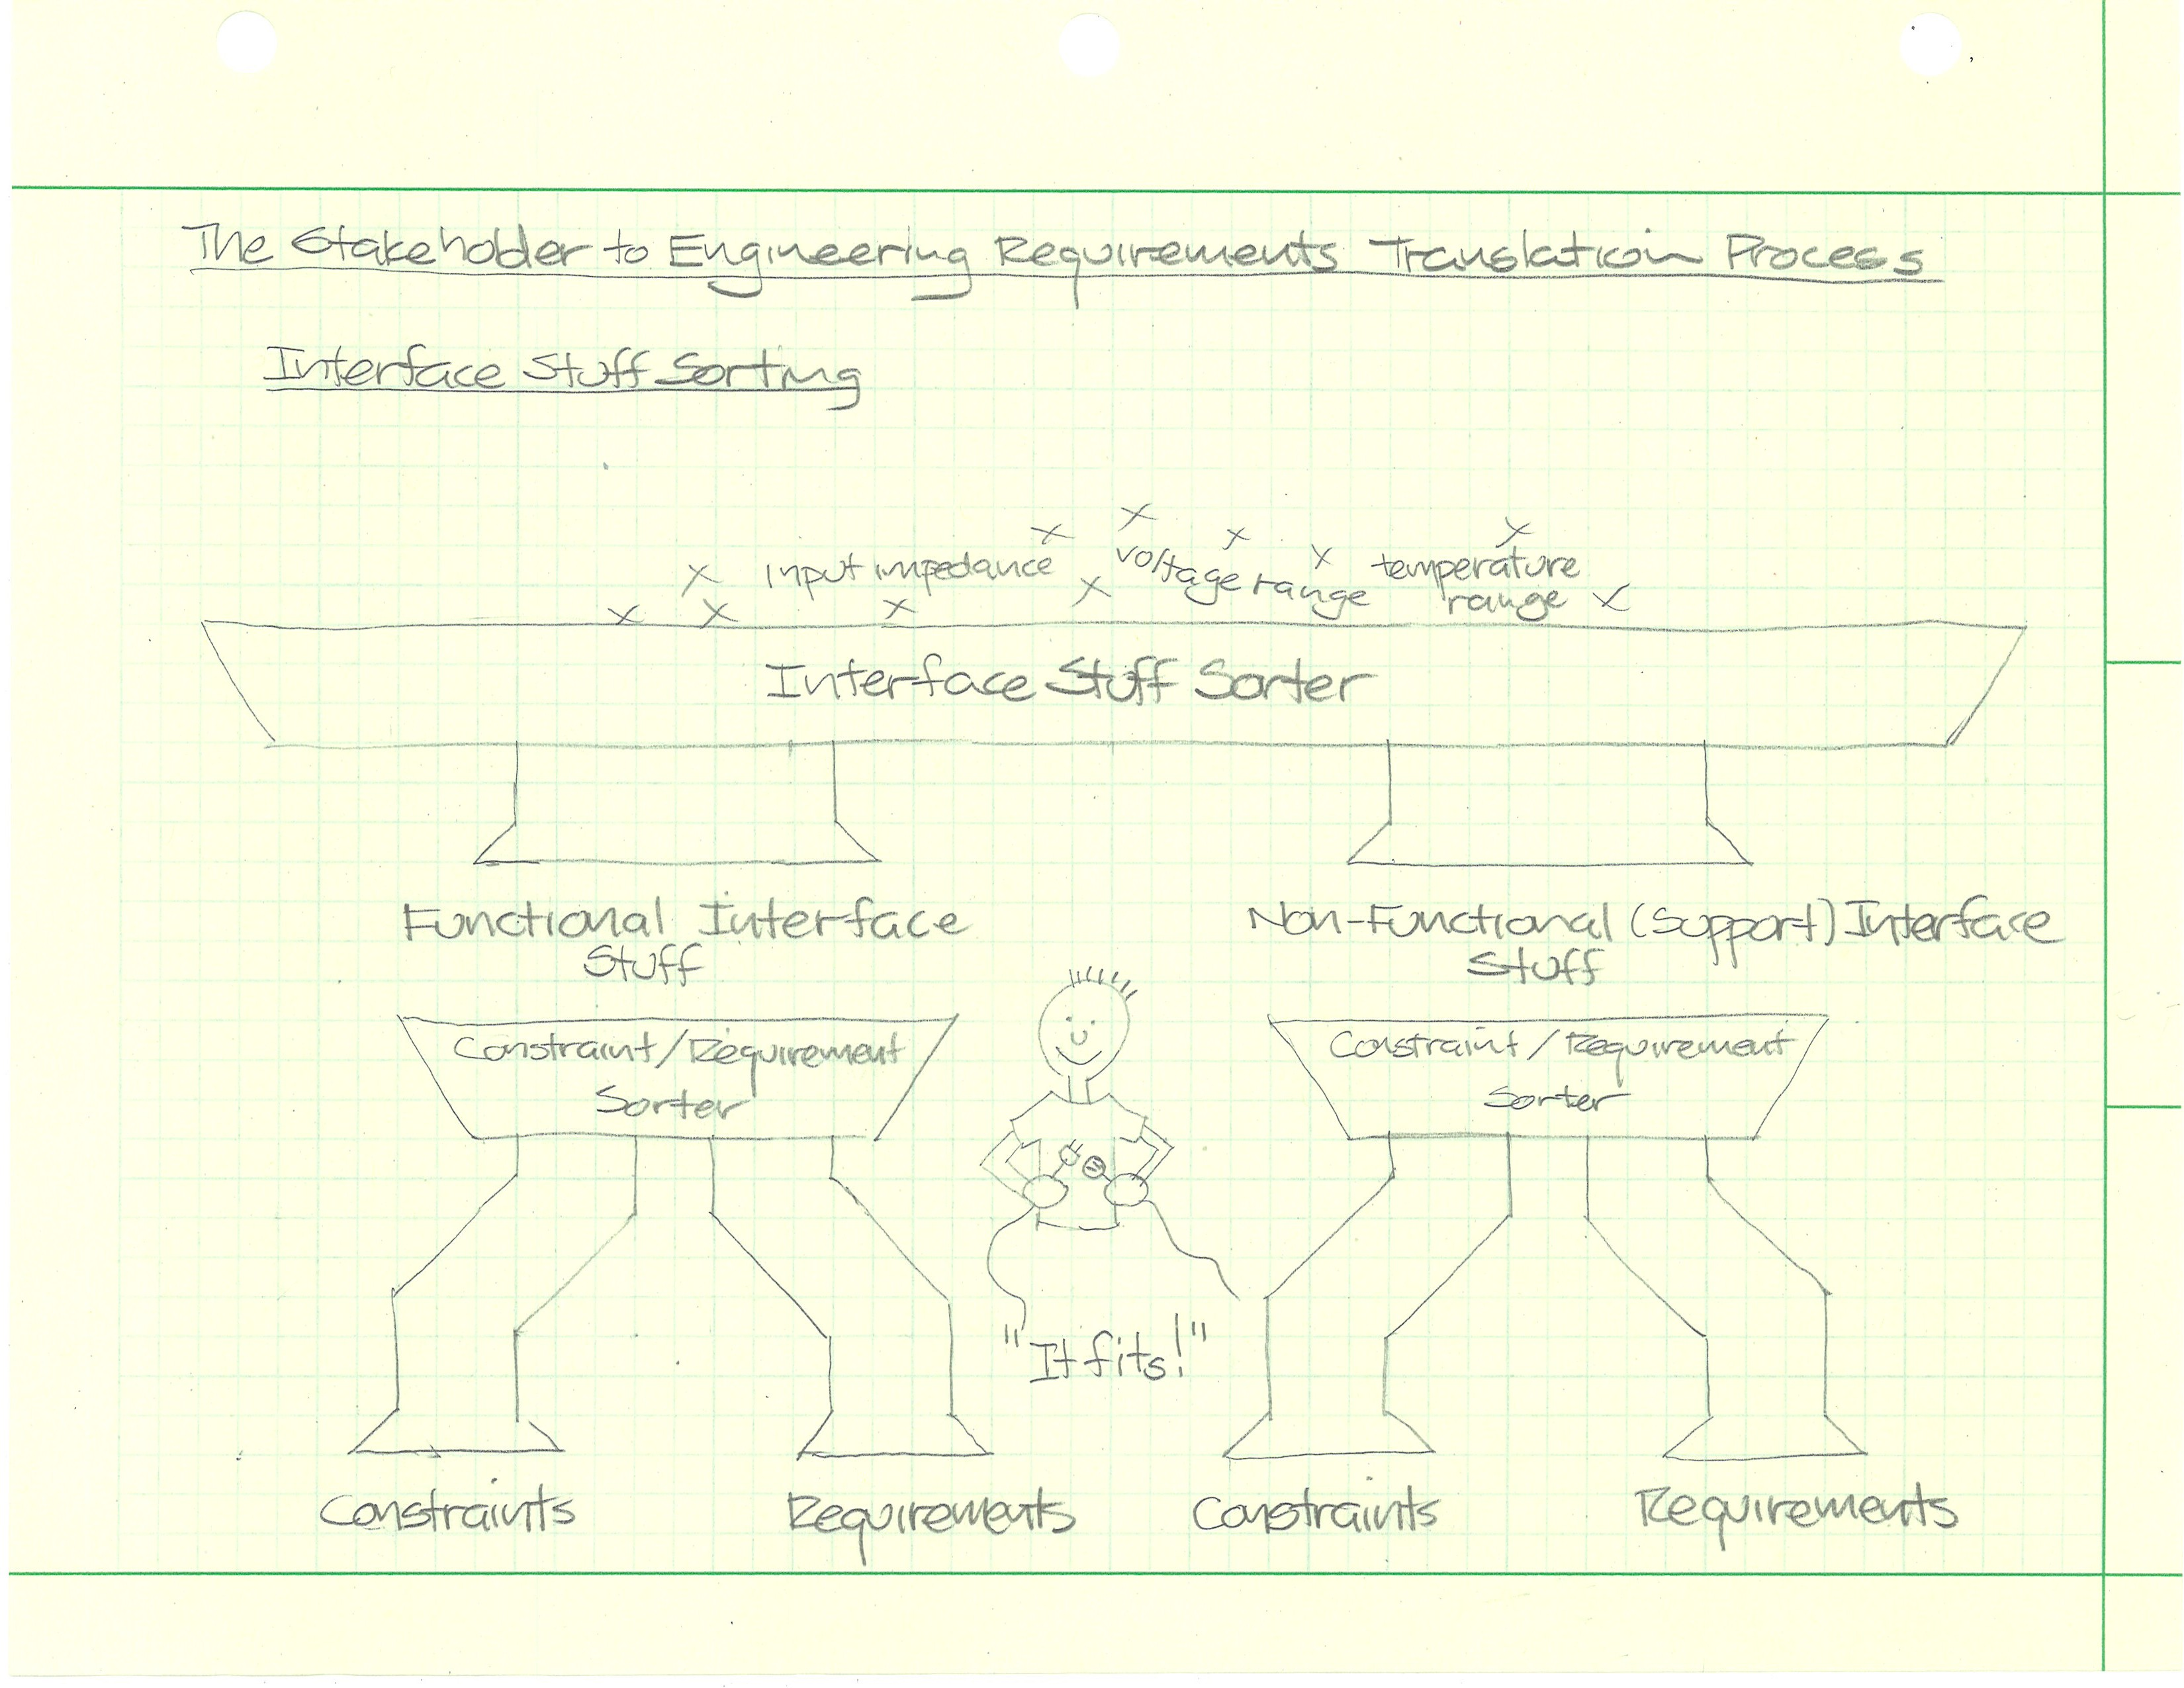 The Stakeholder to Engineering Requirements Translation Process
Interface Stuff Sorting
input impedance
voltage range
temperature
range
Interface Stuff Sorter
Functional Interface
Stuff
Non-Functional (Support) Interface
Stuff
Constraint/Requirement
Sorter
Constraint/Requirement
Sorter
"It fits!"
Constraints
Requirements
Constraints
Requirements